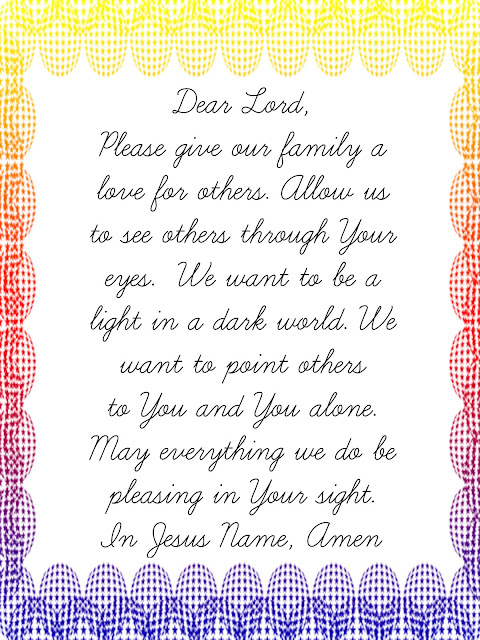 Dear Lord,
Please give our family a
love for others. Allow us
to see others through Your
eyes.  We want to be a
light in a dark world. We
want to point others
to You and You alone.
May everything we do be
pleasing in Your sight.
In Jesus Name, Amen